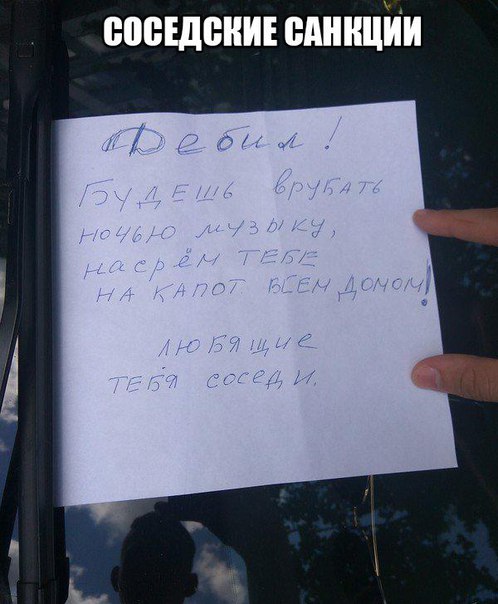 СОСЕДСКИЕ САНКЦИИ
Дебил!
БУДЕШЬ ВРУБАТЬ
НОЧЬЮ МУЗЫКУ,
насрём ТЕБЕ
НА КАПОТ ВСЕМ ДОМОМ!
ЛЮБЯЩИЕ
ТЕБЯ СОСЕДИ.